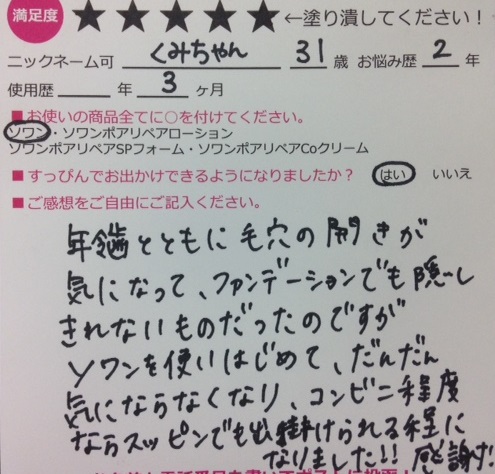 満足度 ★★★★★ ←塗り潰してください!
ニックネーム可 くみちゃん 31 歳 お悩み歴 2 年
使用歴 年 3 ヶ月
■ お使いの商品全てに○を付けてください。
ソワン・ソワンポアリペアローション
ソワンポアリペアSPフォーム・ソワンポアリペアCoクリーム
■ すっぴんでお出かけできるようになりましたか? はい いいえ
■ ご感想をご自由にご記入ください。
年齢とともに毛穴の開きが
気になって、ファンデーションでも隠し
きれないものだったのですが
ソワンを使いはじめて、だんだん
気にならなくなり、コンビニ程度
ならスッピンでも出掛けられる程に
なりました!! 感謝!